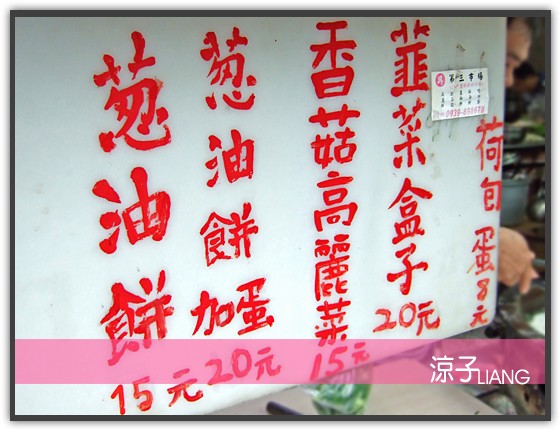 葱油餅
15元
葱油餅加蛋
20元
香菇高麗菜
15元
韮菜盒子
20元
荷包蛋8元
第三市場
涼子LIANG